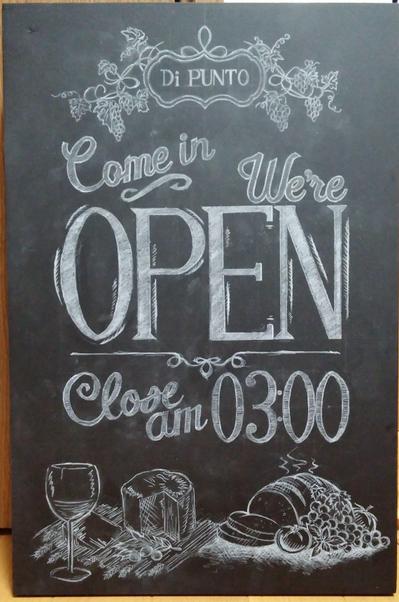 Di PUNTO
Come in
We're
OPEN
Close
am 03:00